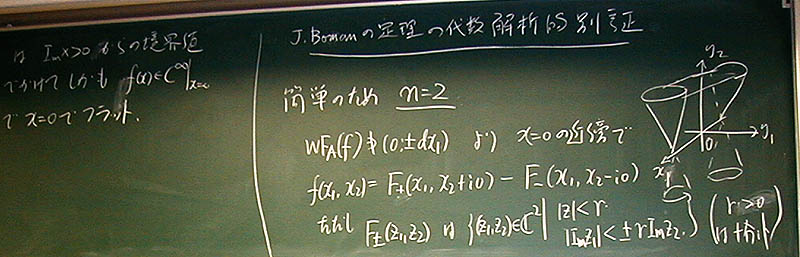 は Im x>0 からの境界値
でかけて しかも f(x)∈C^∞|_{x=0}
で x=0で フラット.
J. Boman の定理の代数解析的別証
簡単のため n=2
WF_A(f) ∌ (0;±dx_1) より x=0 の近傍で
f(x_1, x_2) = F_+(x_1, x_2+i0) − F_-(x_1, x_2−i0)
ただし F_±(z_1, z_2) は {(z_1, z_2)∈ℂ^2 | |z|<r, |Im z_1|<±r Im z_2.} (r>0
y_2
y_1
0
x